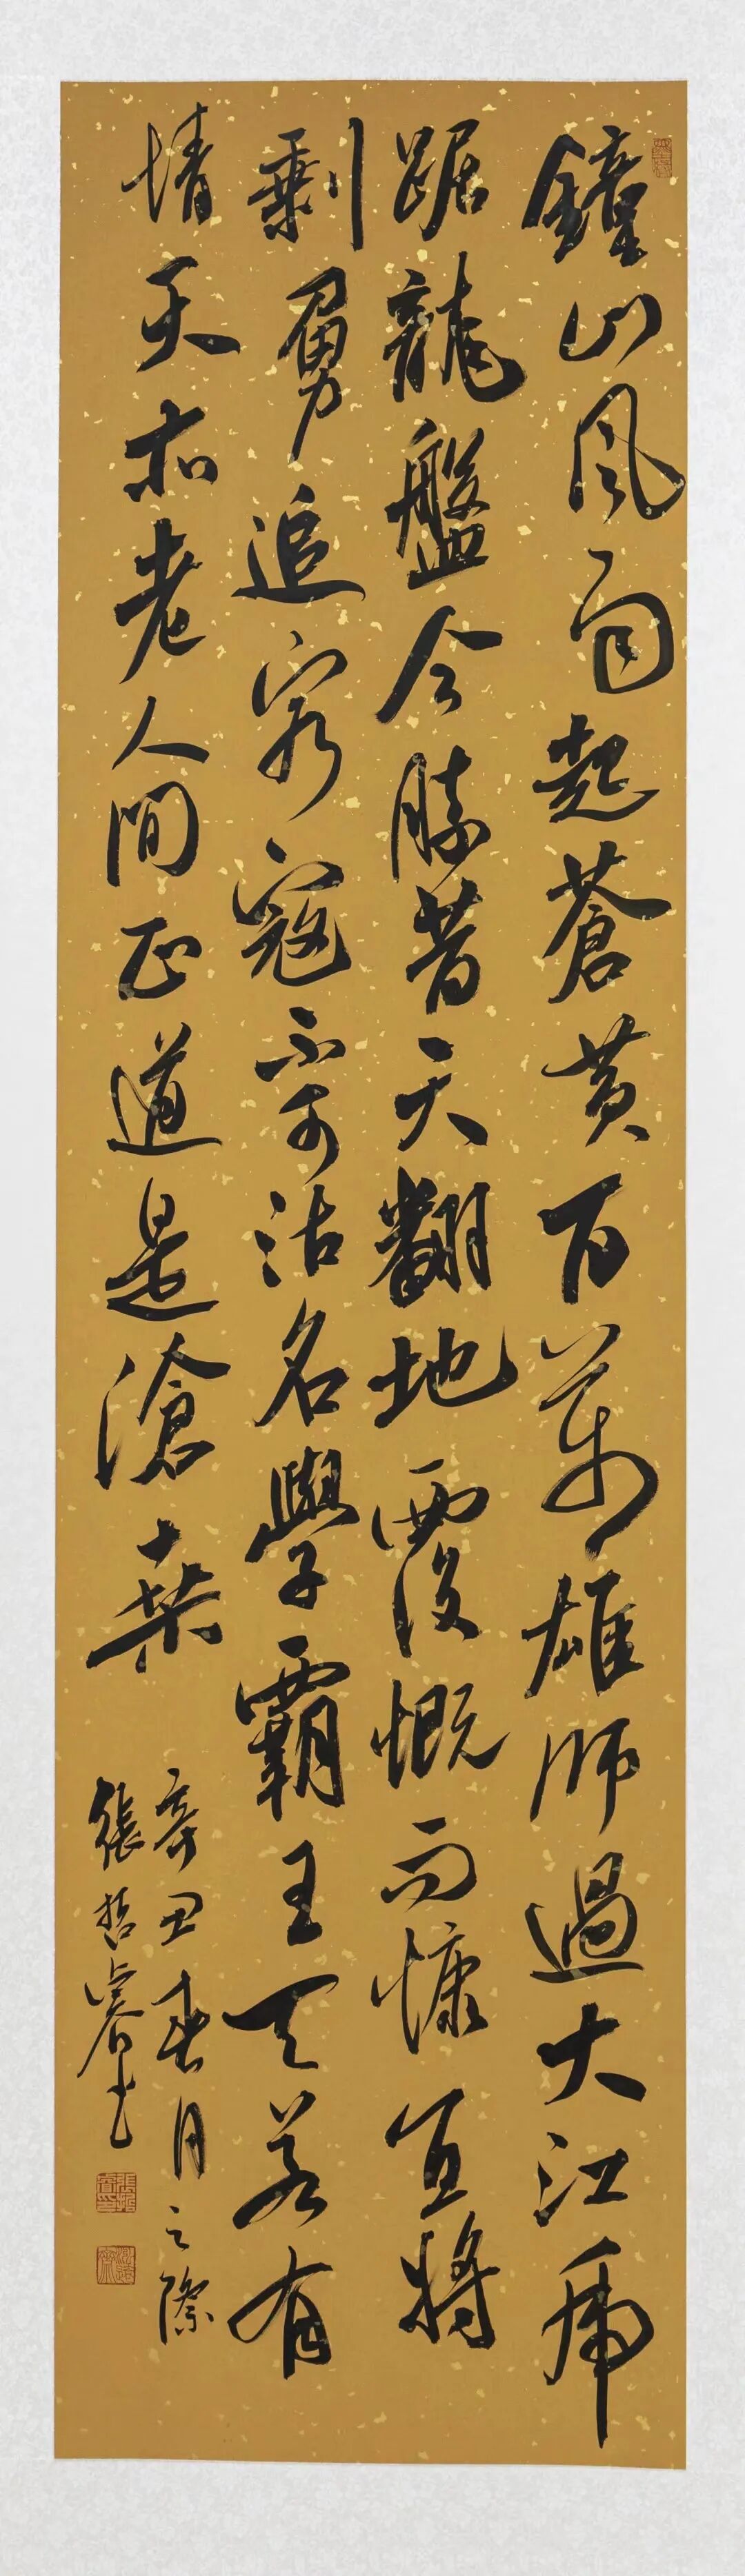 鐘山風雨起蒼黃百萬雄師過大江虎
踞龍盤今勝昔天翻地覆慨而慷宜將
剩勇追窮寇不可沽名學霸王天若有
情天亦老人間正道是滄桑
辛丑春月之際
張哲睿書